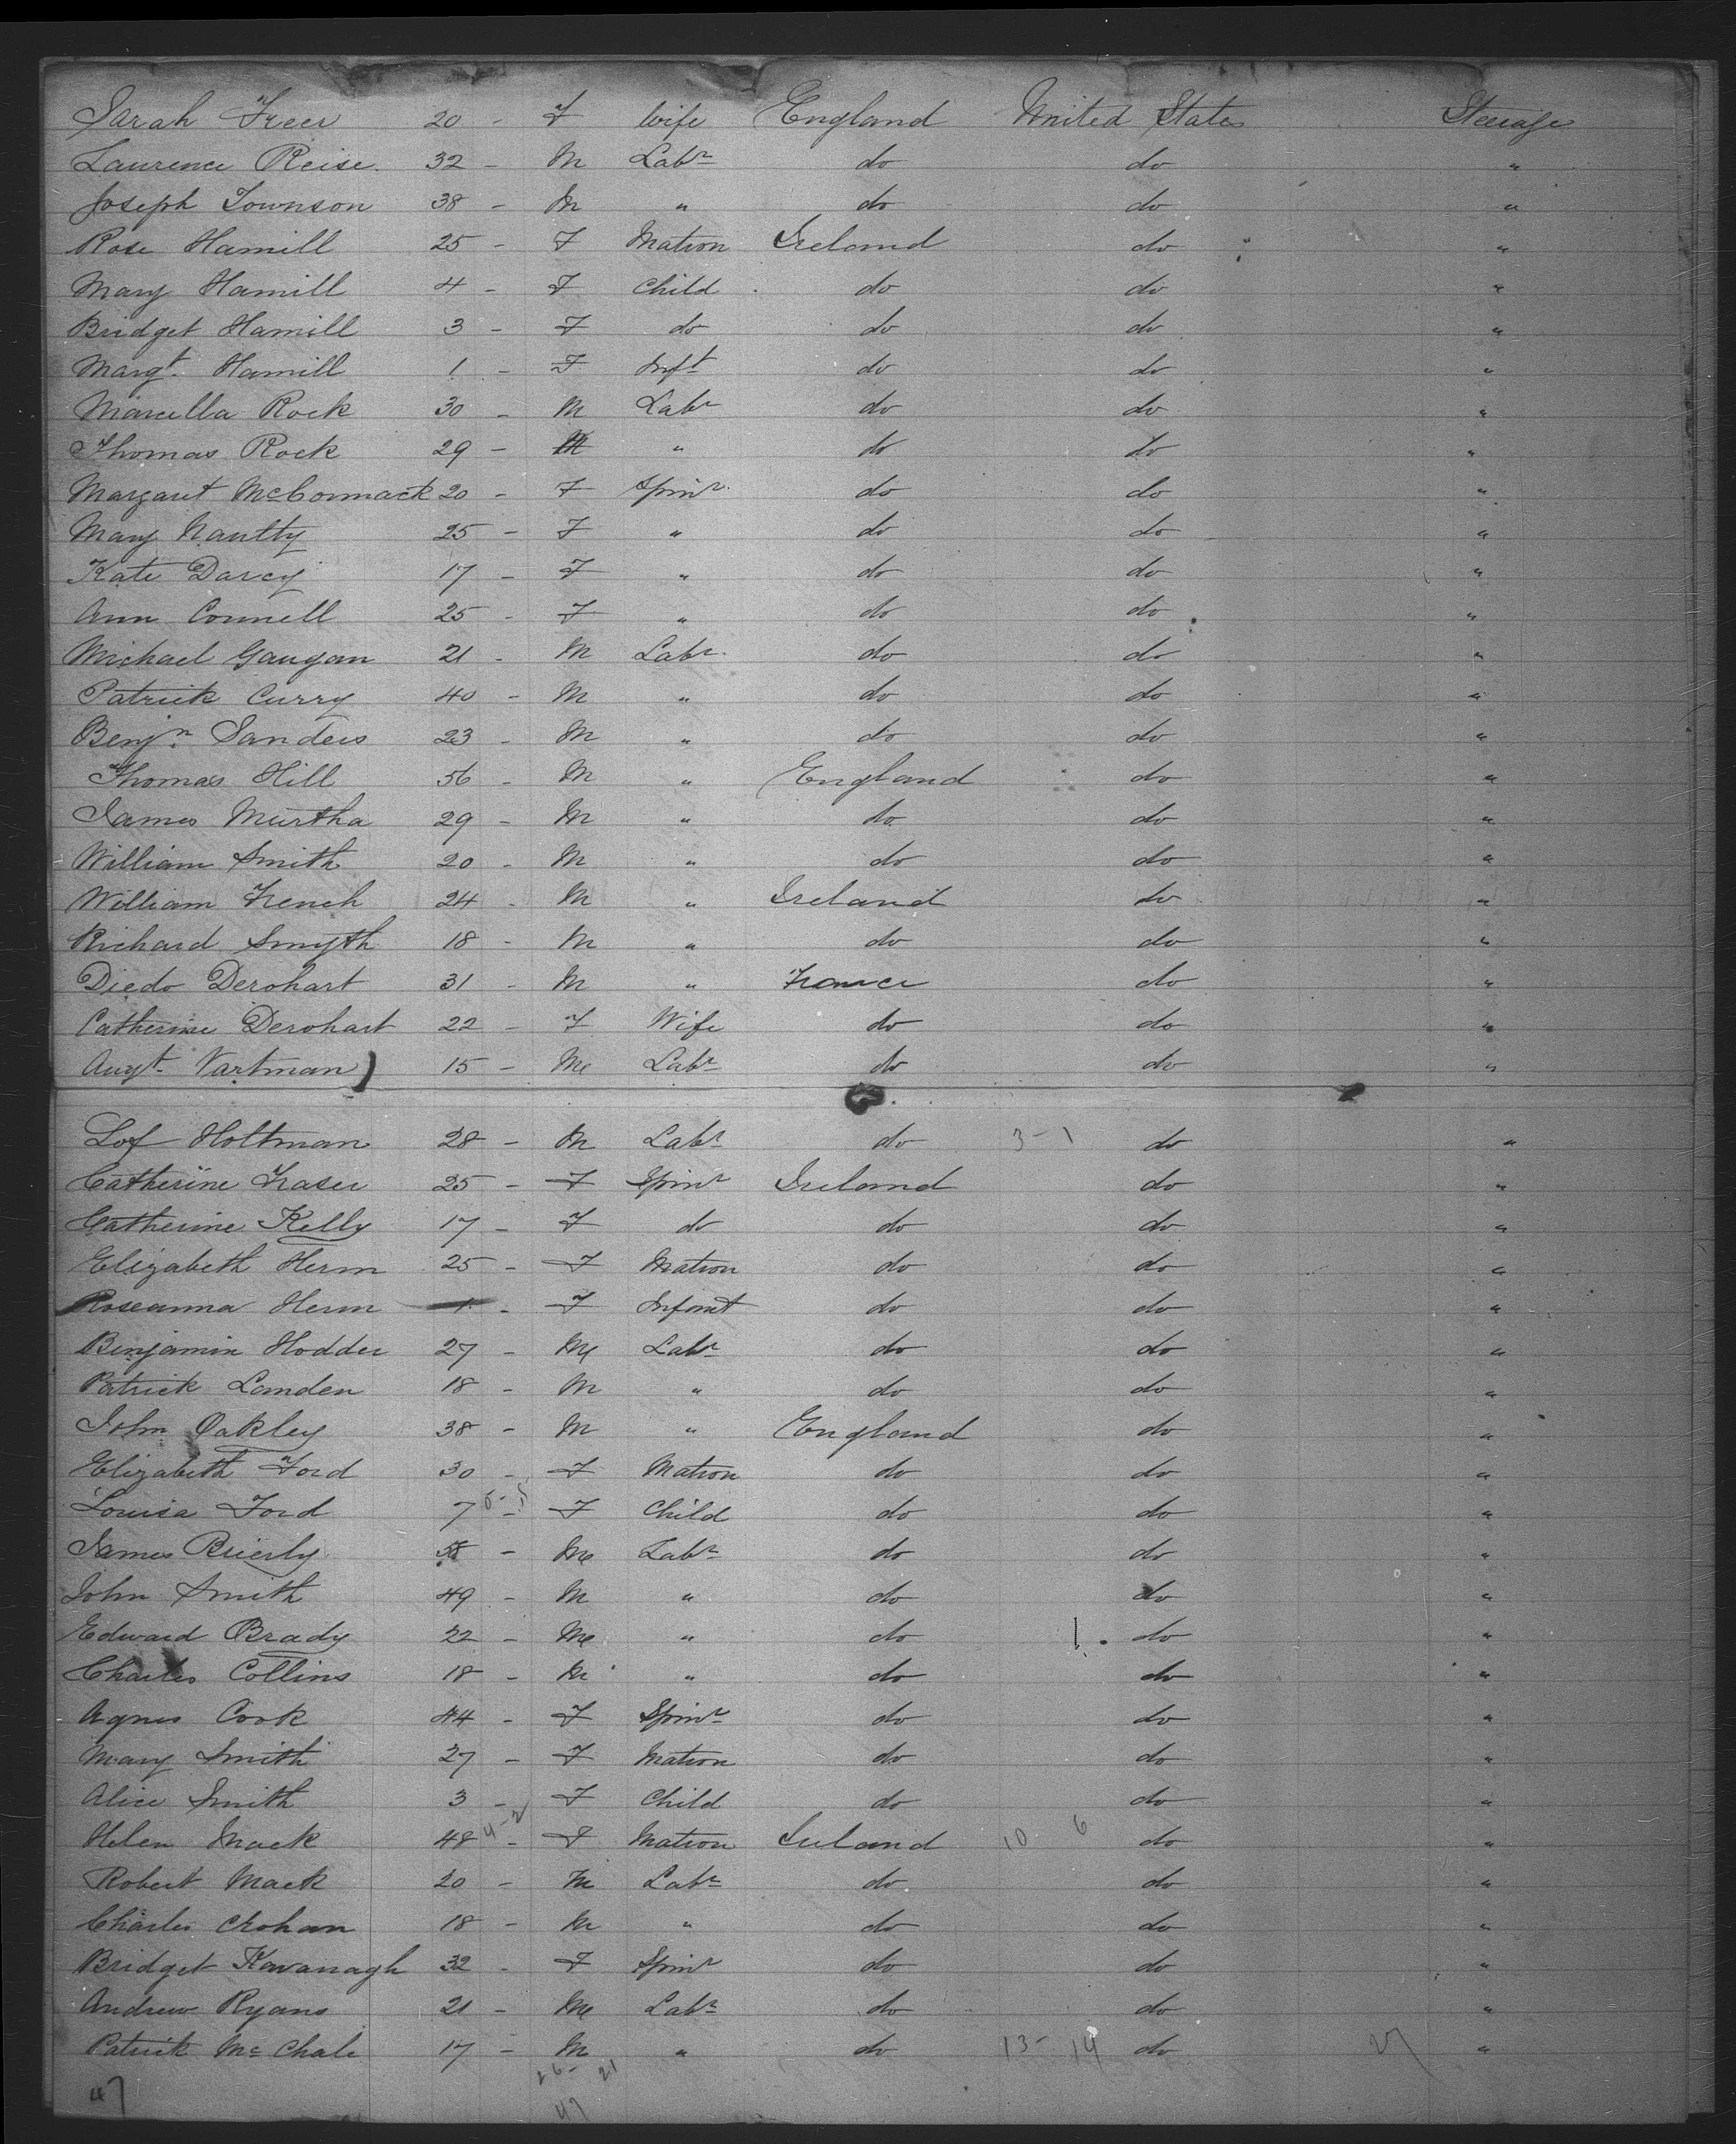 Sarah Freer 20 - F Wife England United States Steerage
Laurence Reise 32 - M Labr do do "
Joseph Townson 38 - M " do do "
Rose Hamill 25 - F Matron Ireland do "
Mary Hamill 4 - F Child do do "
Bridget Hamill 3 - F do do do "
Margt. Hamill 1 - F Inft do do "
Marcella Rock 30 - M Labr do do "
Thomas Rock 29 - M " do do "
Margaret McCormack 20 - F Spinr do do "
Mary Naulty 25 - F " do do "
Kate Darcy 17 - F " do do "
Ann Connell 25 - F " do do "
Michael Gaugan 21 - M Labr do do "
Patrick Curry 40 - M " do do "
Benjn Sanders 23 - M " do do "
Thomas Hill 56 - M " England do "
James Murtha 29 - M " do do "
William Smith 20 - M " do do "
William French 24 - M " Ireland do "
Richard Smyth 18 - M " do do "
Diedo Derohart 31 - M " France do "
Catherine Derohart 22 - F Wife do do "
Augt. Vartman 15 - M Labr do do "
Lof Holtman 28 - M Labr do 3-1 do "
Catherine Fraser 25 - F Spinr Ireland do "
Catherine Kelly 17 - F do do do "
Elizabeth Herm 25 - F Matron do do "
Roseanna Herm 1 - F Infant do do "
Benjamin Hodder 27 - M Labr do do "
Patrick Landen 18 - M " do do "
John Oakley 38 - M " England do "
Elizabeth Ford 30 - F Matron do do "
Louisa Ford 7 - F Child do do "
James Brierly 58 - M Labr do do "
John Smith 49 - M " do do "
Edward Brady 22 - M " do do "
Charles Collins 18 - M " do do "
Agnes Cook 44 - F Spinr do do "
Mary Smith 27 - F Matron do do "
Alice Smith 3 - F Child do do "
Helen Mack 48 4-2 - F Matron Ireland 10 6 do "
Robert Mack 20 - M Labr do do "
Charles Crohan 18 - M " do do "
Bridget Kavanagh 32 - F Spinr do do "
Andrew Ryans 21 - M Labr do do "
Patrick McChale 17 - M " do 13-14 do 27 "
26-21
47 47